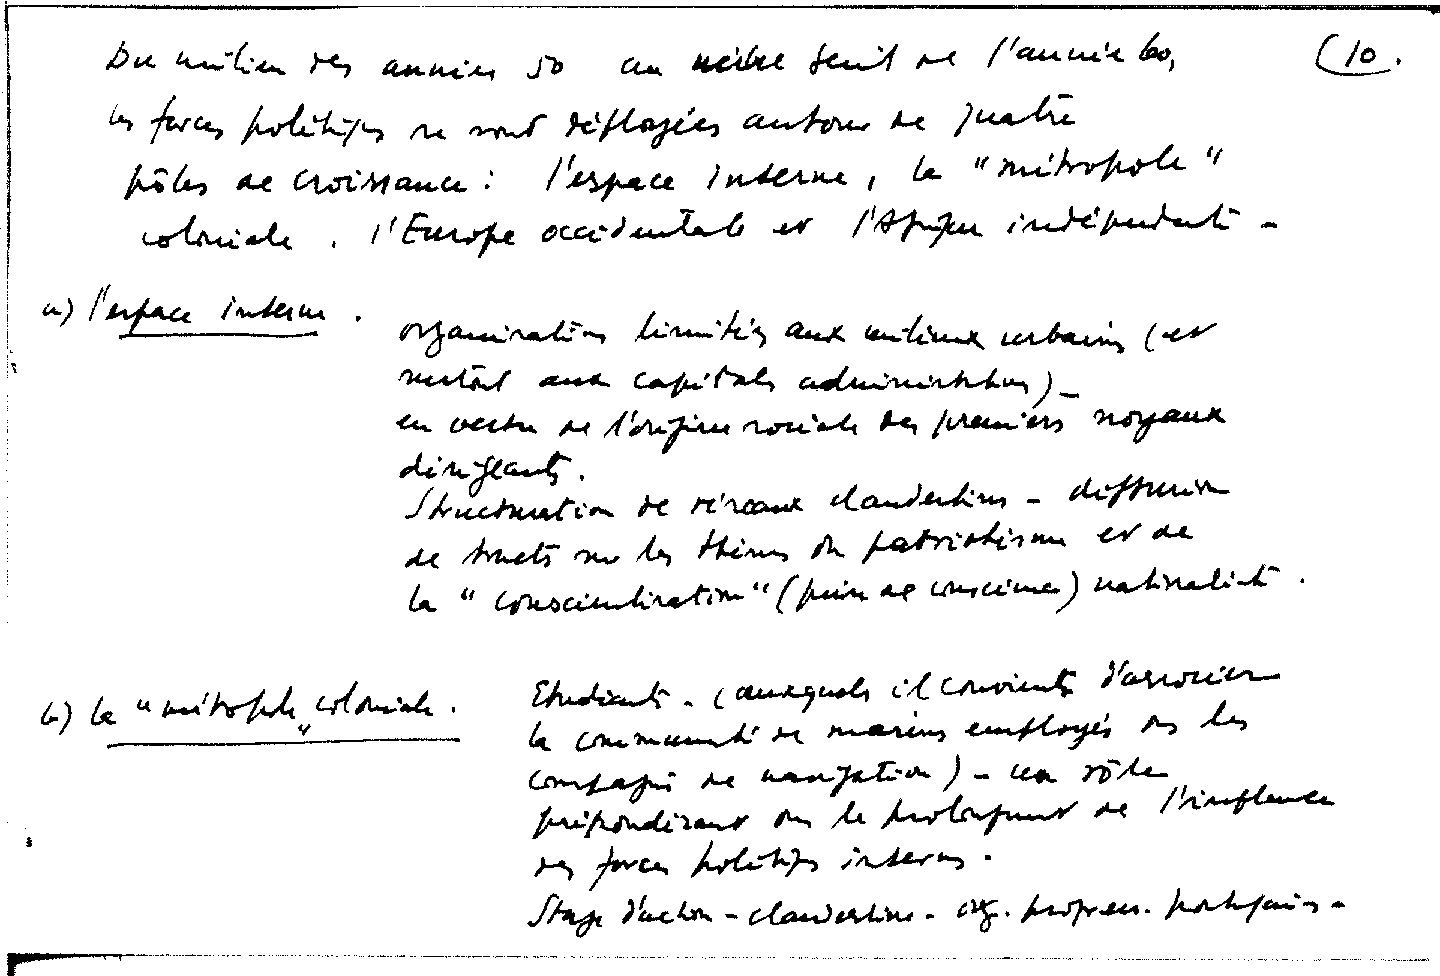 Du milieu des années 50 au seuil de l'année 60, (10.
les forces politiques se sont déployées autour de quatre
pôles de croissance : l'espace interne, la "métropole"
coloniale, l'Europe occidentale et l'Afrique indépendante -
a) l'espace interne.
organisations limitées aux milieux urbains (et
surtout aux capitales administratives) -
en vertu de l'origine sociale des premiers noyaux
dirigeants.
Structuration de réseaux clandestins - diffusion
de tracts sur les thèmes du patriotisme et de
la "conscientisation" (prise de conscience) nationaliste.
b) la "métropole" coloniale.
Etudiants - (auxquels il convient d'associer
la communauté de marins employés ds les
compagnies de navigation) - un rôle
prépondérant ds le prolongement de l'influence
des forces politiques internes.
Stage d'action - clandestine - org. progress. portugaises -